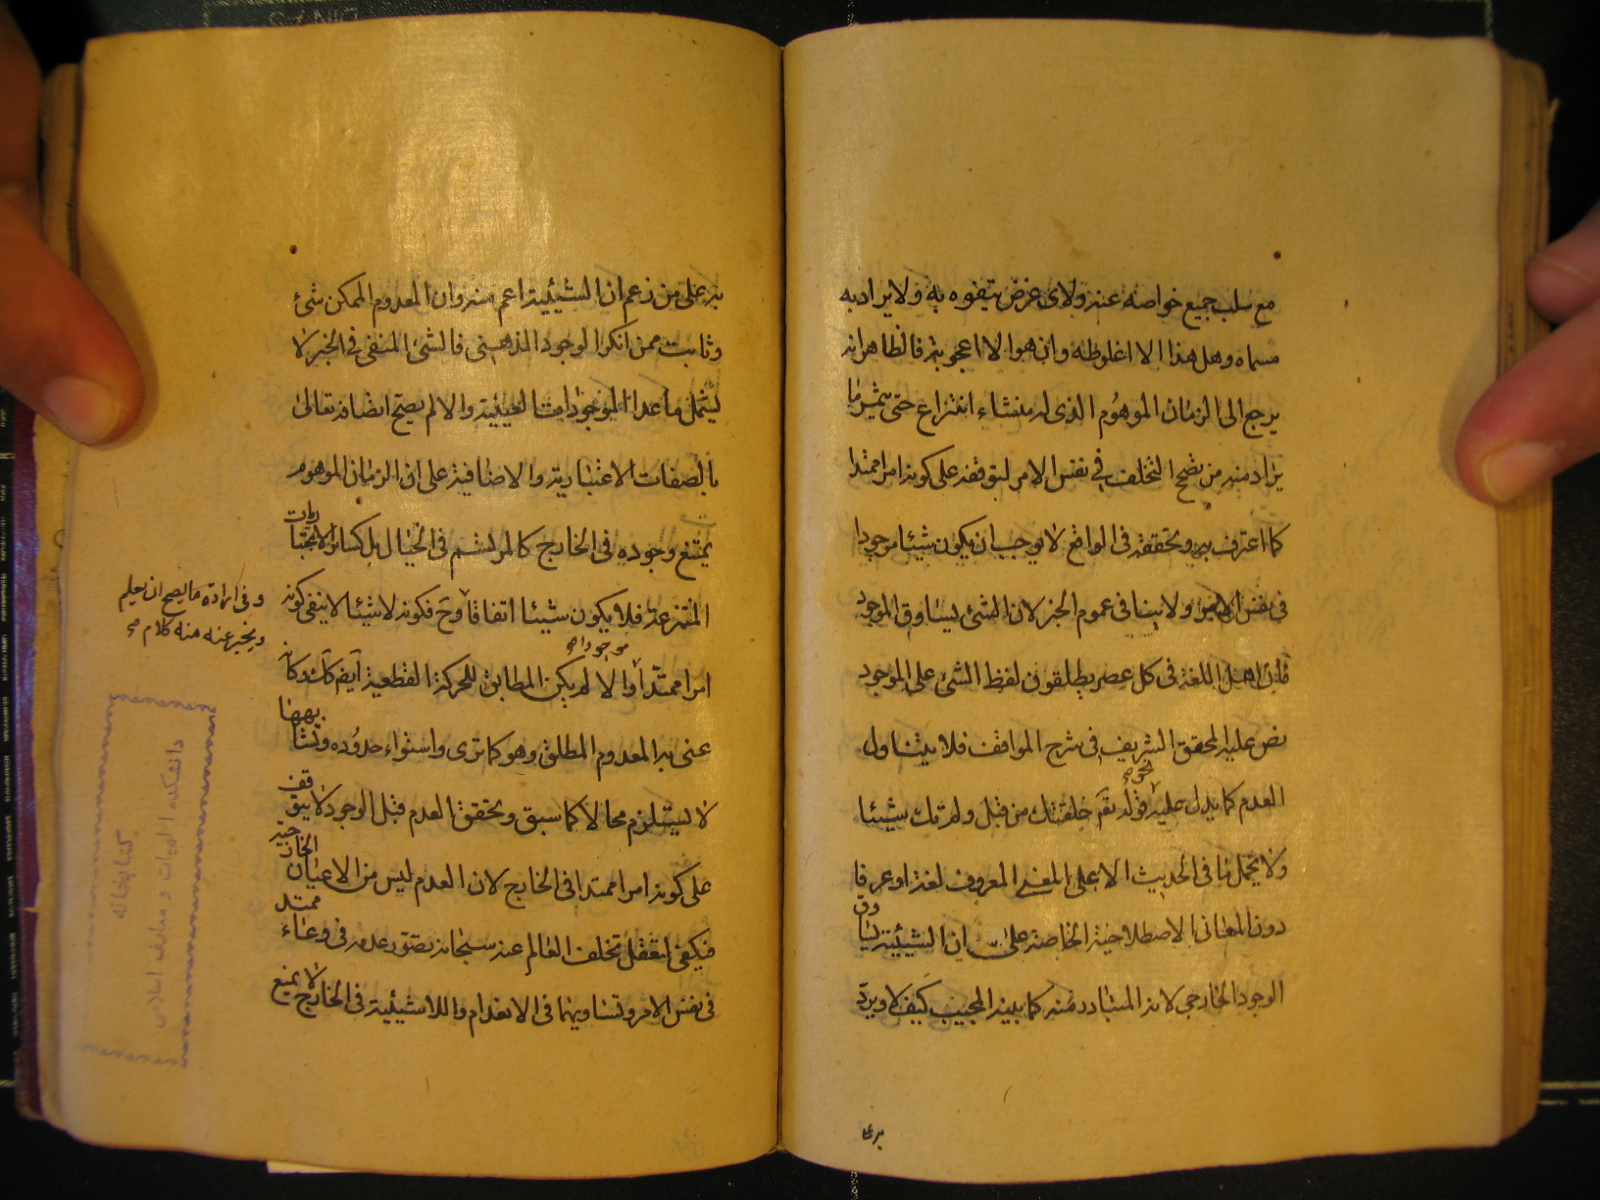 مع سلب جميع خواصه عنه ولاى غرض يتفوه به ولا يراد به
مسماه وهل هذا الا اغلوطه وان هو الا اعجوبة فالظاهر انه
يرجع الى الزمان الموهوم الذى له منشاء انتزاع حتى
يراد منه من تصحح التخلف فى نفس الامر لتوقفه على كونه امرا ممتدا
كما اعترف به وتحققه فى الواقع لا يوجب ان يكون شيئا موجودا
فى نفس الامر ولا ينافى عموم الخبر لان الشئ يساوق الموجود
فان اهل اللغة فى كل عصر يطلقون لفظ الشئ على الموجود
نص عليه المحقق الشريف فى شرح المواقف فلا يتناول
العدم كما يدل عليه قوله تعم خلقتك من قبل ولم تك شيئا
ولا يحمل ما فى الحديث الا على المعنى المعروف لغة او عرفا
دون المعانى الاصطلاحية الخاصة على ان الشيئية تساوق
الوجود الخارجى لانه المتبادر منه كما بينه المجيب كيف لا ويرد
يرد على
به على من زعم ان الشيئية اعم منه وان المعدوم الممكن شئ
وثابت ممن انكر الوجود الذهنى فالشئ المنفى فى الخبر لا
يشمل ما عدا الموجودات العينية والا لم يصح اتصافه تعالى
بالصفات الاعتبارية والاضافية على ان الزمان الموهوم
يمتنع وجوده فى الخارج كالمرتسم فى الخيال بل كسائر الاعتباريات
المنتزعة فلا يكون شيئا اتفاقا وح فكونه لا شيئا لا ينفى كونه
امرا ممتدا موجودا والا لم يكن المطابق للحركة القطعية ايضا كك وكانه
عنى به المعدوم المطلق وهو كما ترى واستواء حدوده وتشابهها
لا يستلزم محالا كما سبق وتحقق العدم قبل الوجود لا يتوقف
على كونه امرا ممتدا فى الخارج لان العدم ليس من الاعيان الخارجية
فيكفى لتعقل تخلف العالم عنه سبحانه تصور عدمه فى وعاء ممتد
فى نفس الامر وتساويهما فى الانعدام واللاشيئية فى الخارج لا يمنع
وفى ارادة ما يصح ان يعلم
ويخبر عنه منه كلام
دانشكده الهيات و معارف اسلامى
كتابخانه